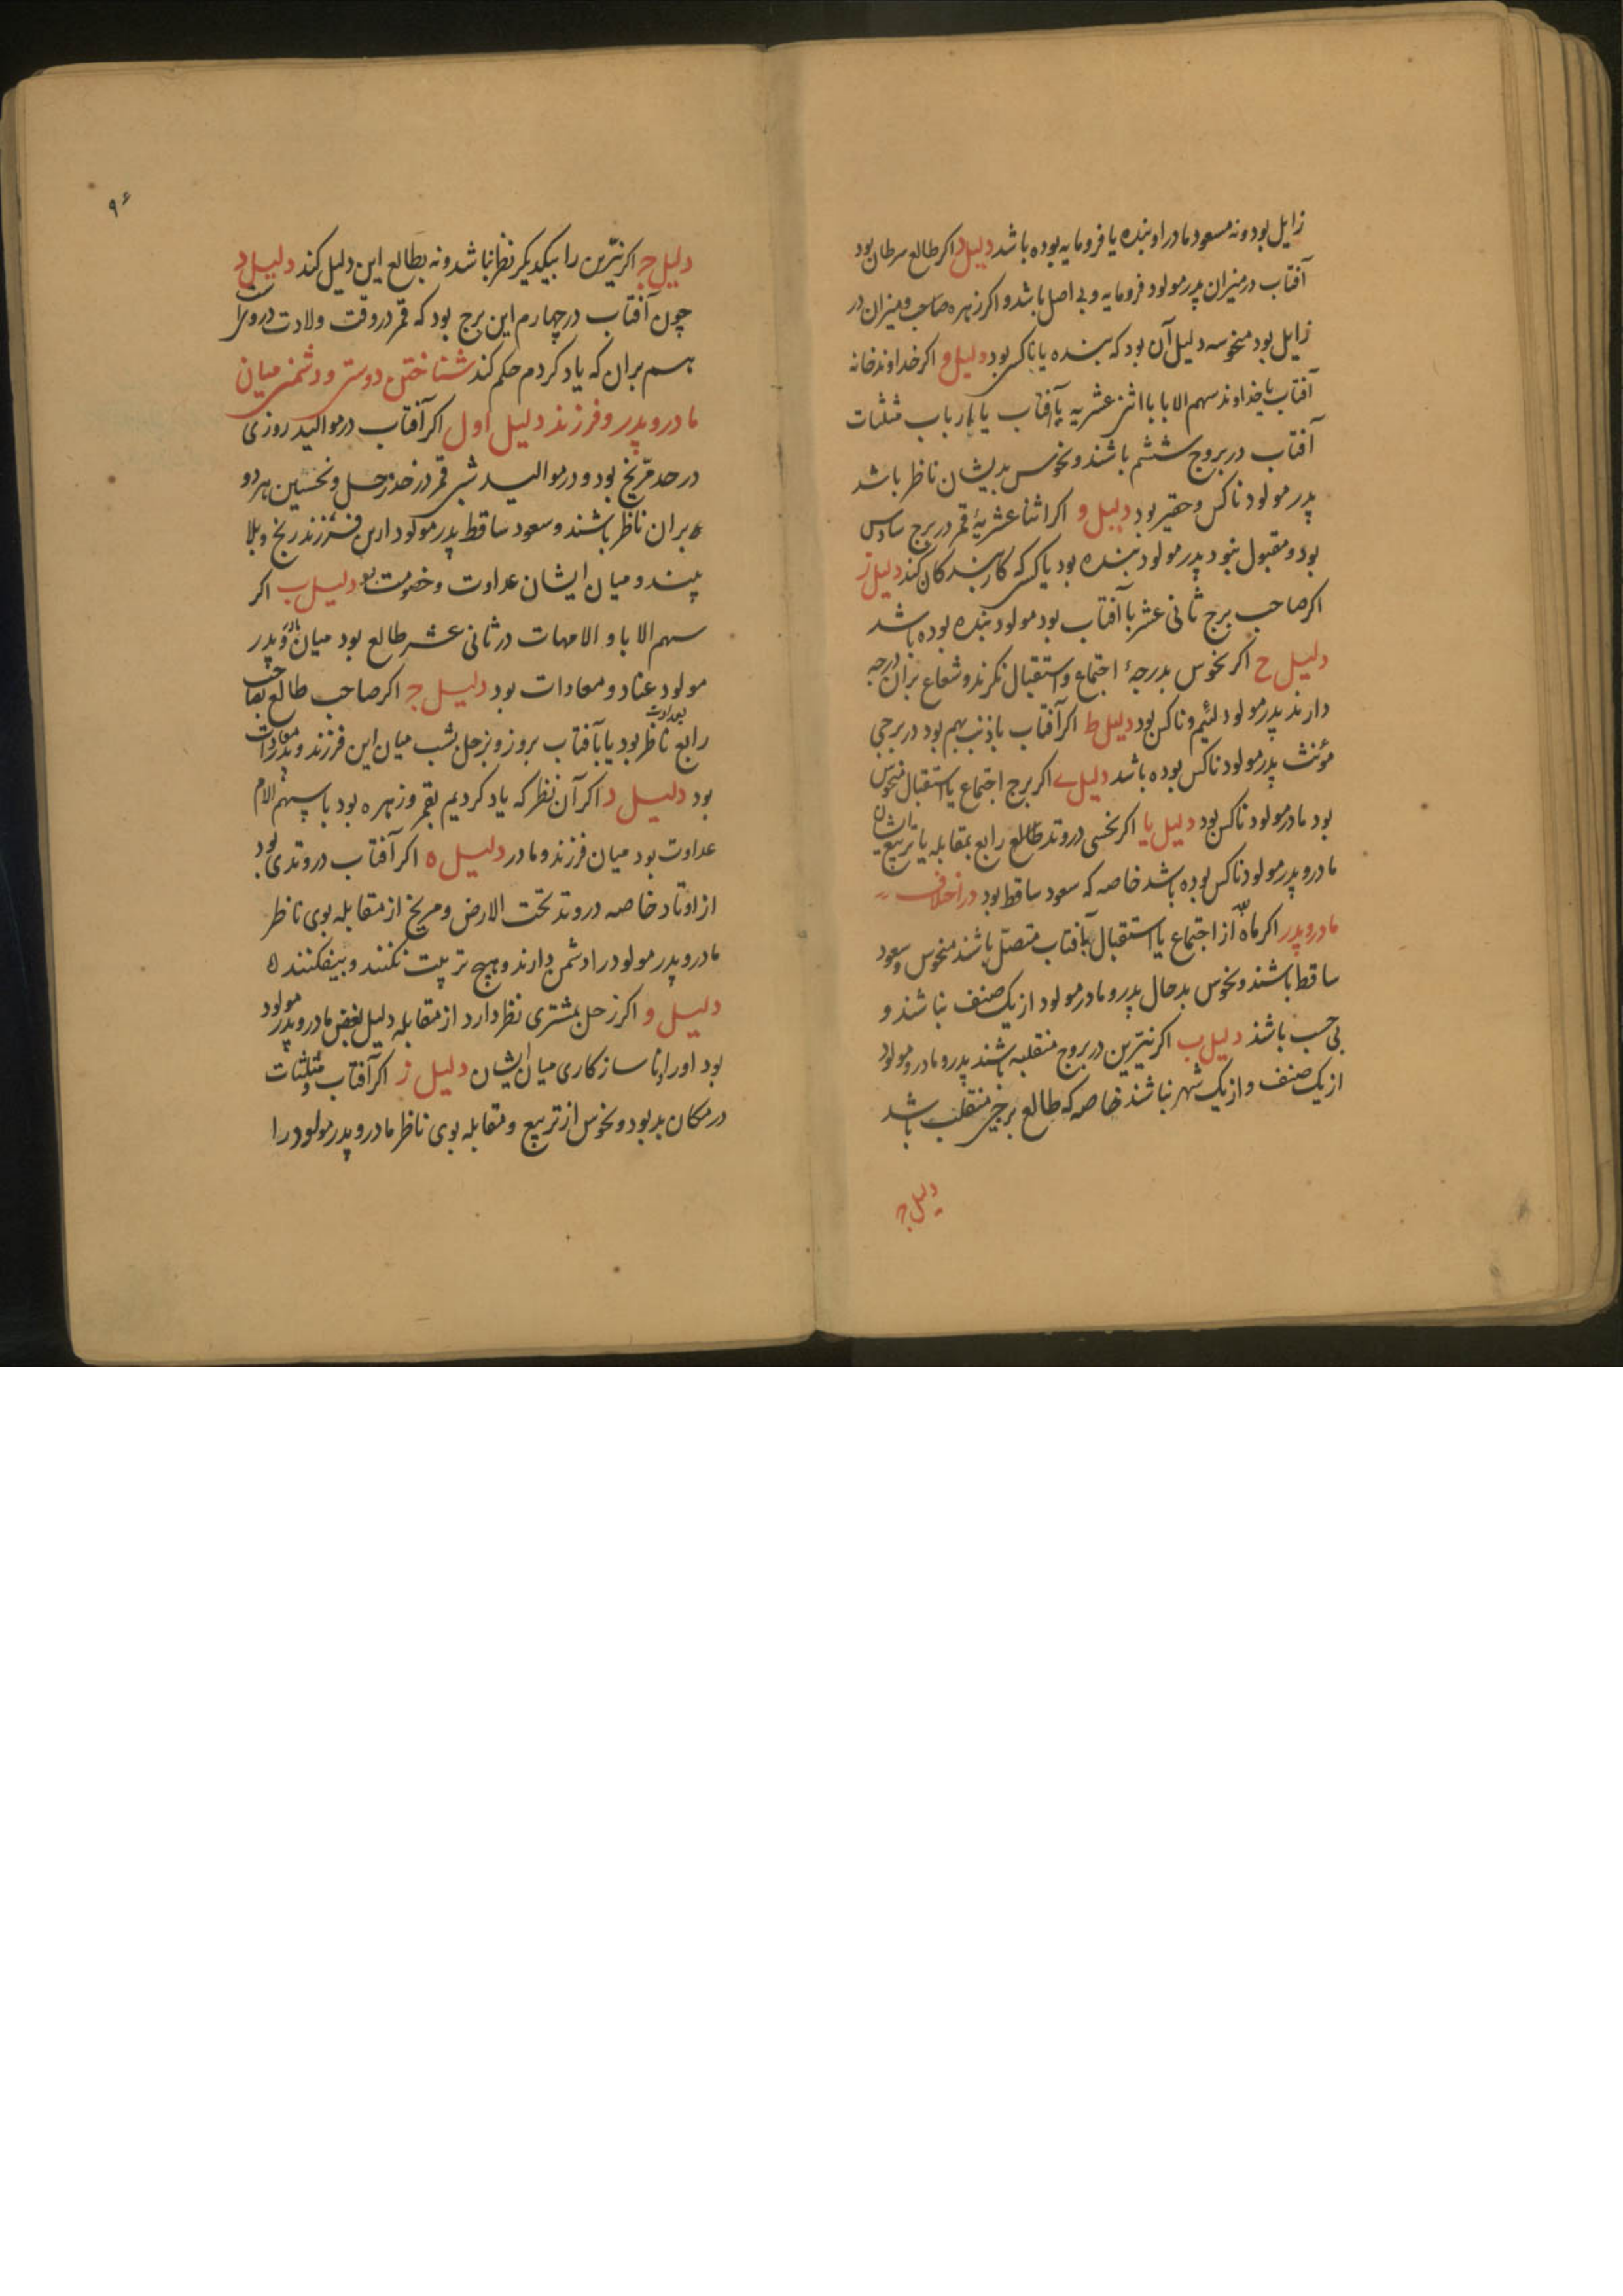 زایل بود ونه مسعود مادر او بنده یا فرومایه بوده باشد دلیل د اکر طالع سرطان بود
آفتاب در میزان پدر مولود فرومایه و بی اصل باشد و اکر زهره صاحب میزان در
زایل بود منحوسه دلیل آن بود که بنده یا ناکس بود دلیل اکر خداوند خانه
آفتاب یا خداوند سهم الابا با اثنی عشریه آفتاب یا ارباب مثلثات
آفتاب در بروج ششم باشند و نحوس بدیشان ناظر باشد
پدر مولود ناکس و حقیر بود دلیل و اکر اثنا عشریهٔ قمر در برج سادس
بود و مقبول نبود پدر مولود بنده بود یا کسی که کار بندکان کند دلیل ز
اکر صاحب برج ثانی عشر با آفتاب بود مولود بنده بوده باشد
دلیل ح اکر نحوس بدرجهٔ اجتماع و استقبال نکرند و شعاع بران درجه
دارند پدر مولود لئیم و ناکس بود دلیل ط اکر آفتاب با ذنب بهم بود در برجی
مؤنث پدر مولود ناکس بوده باشد دلیل ی اکر برج اجتماع یا استقبال منحوس
بود مادر مولود ناکس بود دلیل یا اکر نحسی در وتد طالع رابع بمقابله یا تربیع
مادر و پدر مولود ناکس بوده باشد خاصه که سعود ساقط بود در اختلاف
مادر و پدر اکر ماه از اجتماع یا استقبال بآفتاب متصل باشند منحوس و سعود
ساقط باشند و نحوس بدحال پدر و مادر مولود از یک صنف نباشند و
بی حسب باشند دلیل ب اکر نیّرین در بروج منقلبه باشند پدر و مادر مولود
از یک صنف و از یک شهر نباشند خاصه که طالع برجی منقلب باشد
دلیل ج
۹۶
دلیل ج اکر نیّرین را بیکدیکر نظر نباشد ونه بطالع این دلیل کند دلیل د
چون آفتاب در چهارم این برج بود که قمر در وقت ولادت دروست
هم بران که یاد کردم حکم کند شناختن دوستی و دشمنی میان
مادر و پدر و فرزند دلیل اول اکر آفتاب در موالید روزی
در حد مرّیخ بود و در موالید شبی قمر در حد زحل و نحسین هر دو
بران ناظر باشند و سعود ساقط پدر مولود ازین فرزند رنج و بلا
بیند و میان ایشان عداوت و خصومت بود دلیل ب اکر
سهم الابا و الامهات در ثانی عشر طالع بود میان مادر و پدر
مولود عناد و معادات بود دلیل ج اکر صاحب طالع بصاحب
رابع ناظر بود بعداوت یا بآفتاب بروز و بزحل بشب میان این فرزند و پدر معادات
بود دلیل د اکر آن نظر که یاد کردیم بقمر و زهره بود یا بسهم الام
عداوت بود میان فرزند و مادر دلیل ه اکر آفتاب در وتدی بود
از اوتاد خاصه در وتد تحت الارض و مریخ از مقابله بوی ناظر
مادر و پدر مولود را دشمن دارند و هیچ تربیت نکنند و بیفکنند
دلیل و اکر زحل بمشتری نظر دارد از مقابله دلیل بغض مادر و پدر مولود
بود او را و ناسازکاری میان ایشان دلیل ز اکر آفتاب و مثلثات
در مکان بد بود و نحوس از تربیع و مقابله بوی ناظر مادر و پدر مولود را